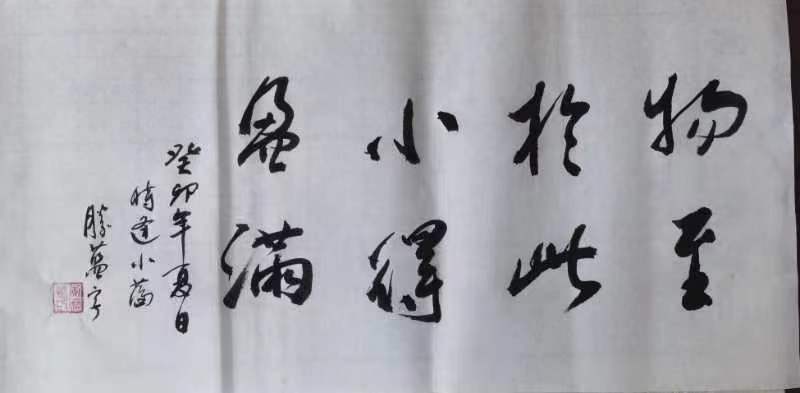 物至
於此
小得
盈滿
癸卯年夏日
時逢小滿